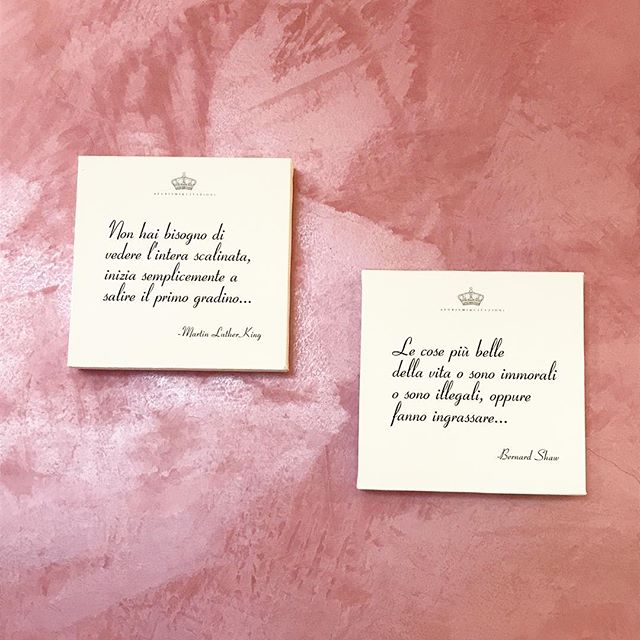 AFORISMIECITAZIONI
Non hai bisogno di
vedere l'intera scalinata,
inizia semplicemente a
salire il primo gradino...
-Martin Luther King
AFORISMIECITAZIONI
Le cose più belle
della vita o sono immorali
o sono illegali, oppure
fanno ingrassare...
-Bernard Shaw